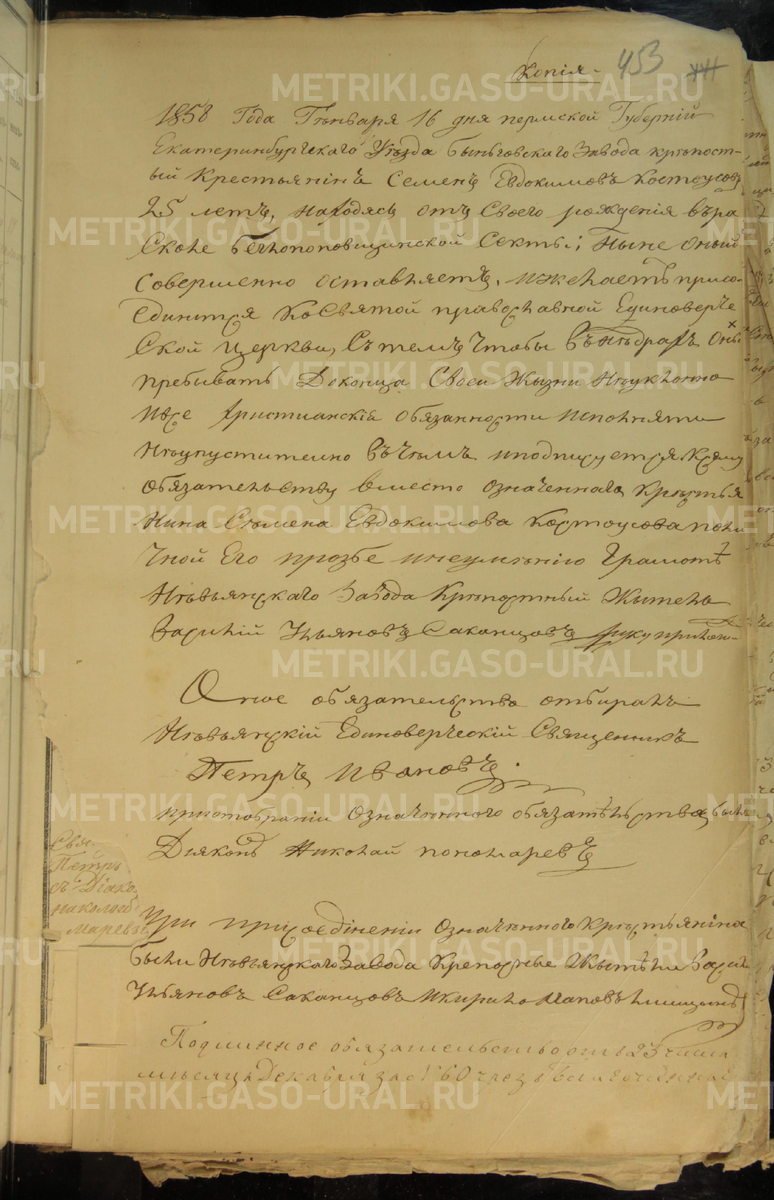 Копія
453
1858 Года Генваря 16 дня пермской Губерній
Екатеринбургскаго Уезда Быньговскаго Завода крѣпост-
ый Крестьянинъ Семенъ Евдокимовъ Костоусовъ
25 летъ, находясь отъ своего рождения въ ра
сколе беглопоповщинской Секты; Ныне оный
совершенно оставляетъ, и желаетъ присо-
единится ко святой православной Единоверче
ской церкви, съ темъ чтобы въ недрахъ Оны
пребывать До конца своей Жызни Неуклонно
и все христианскія обязанности исполняти
неупустително въ чемъ и подписуется к сему
обязательству вместо означеннаго крестья
нина Семена Евдокимова Костоусова по ли
чной Его прозбе и неумению Грамотѣ
Невьянскаго Завода Крепостный Жытель
Василій Ульяновъ Саканцовъ руку прилож-
Оное обязателство отбиралъ
Невьянскій Единоверческій Священникъ
Петръ Ивановъ
при отобраніи означеннаго обязателства былъ
Дьяконъ Николай пономаревъ
Свя.
Петръ
съ Діако
николой
Маревъ
При присоединеніи означеннаго Крестьянина
были Невьянскаго Завода Крепосные Жытели Васил
Ульяновъ Саканцовъ и Кирило
Подлинное обязательство отъ 23 числа
месяца Декабря 1860
METRIKI.GASO-URAL.RU